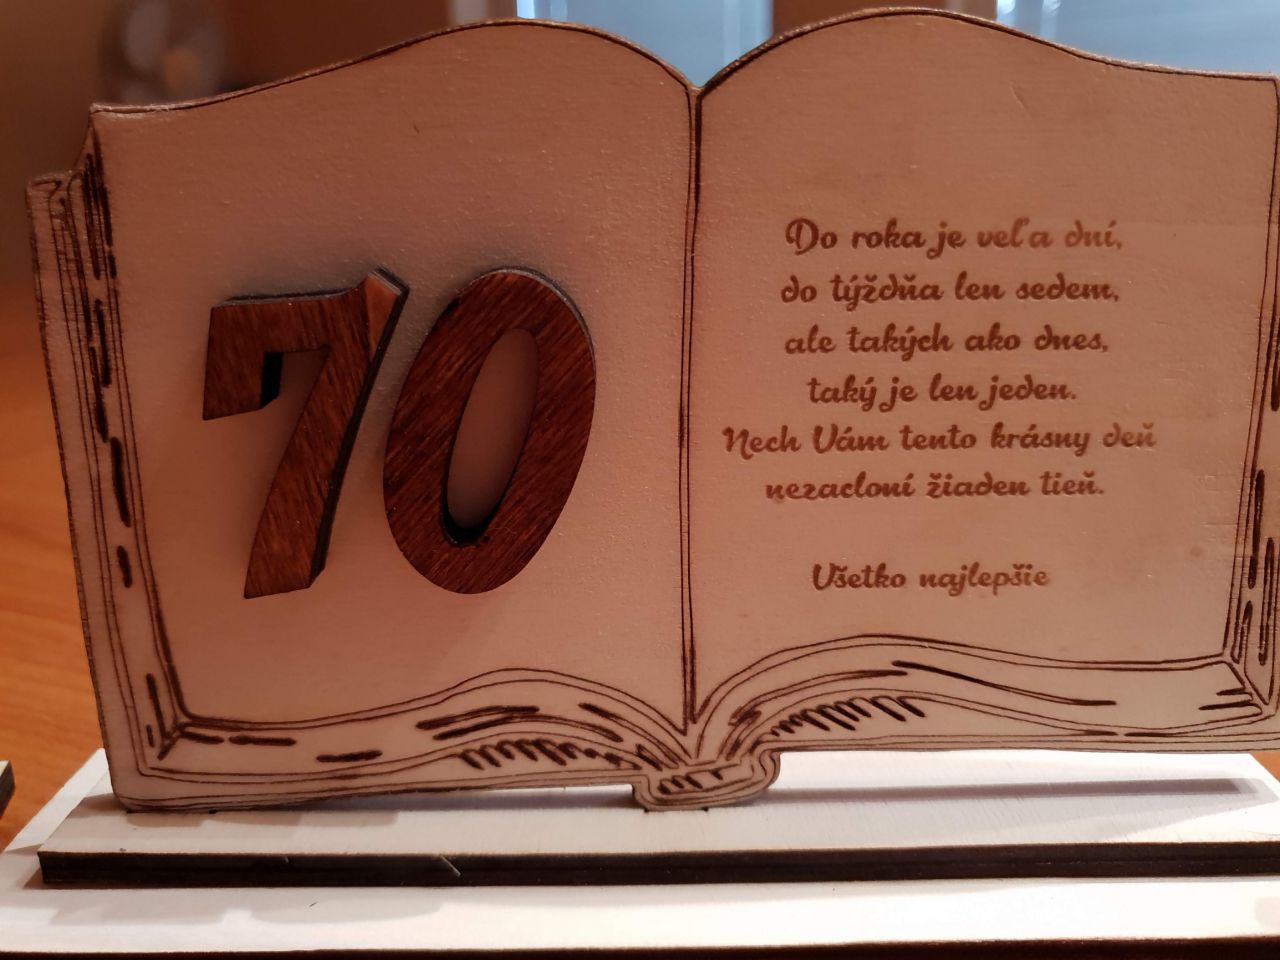 70
Do roka je veľa dní,
do týždňa len sedem,
ale takých ako dnes,
taký je len jeden.
Nech Vám tento krásny deň
nezacloní žiaden tieň.
Všetko najlepšie